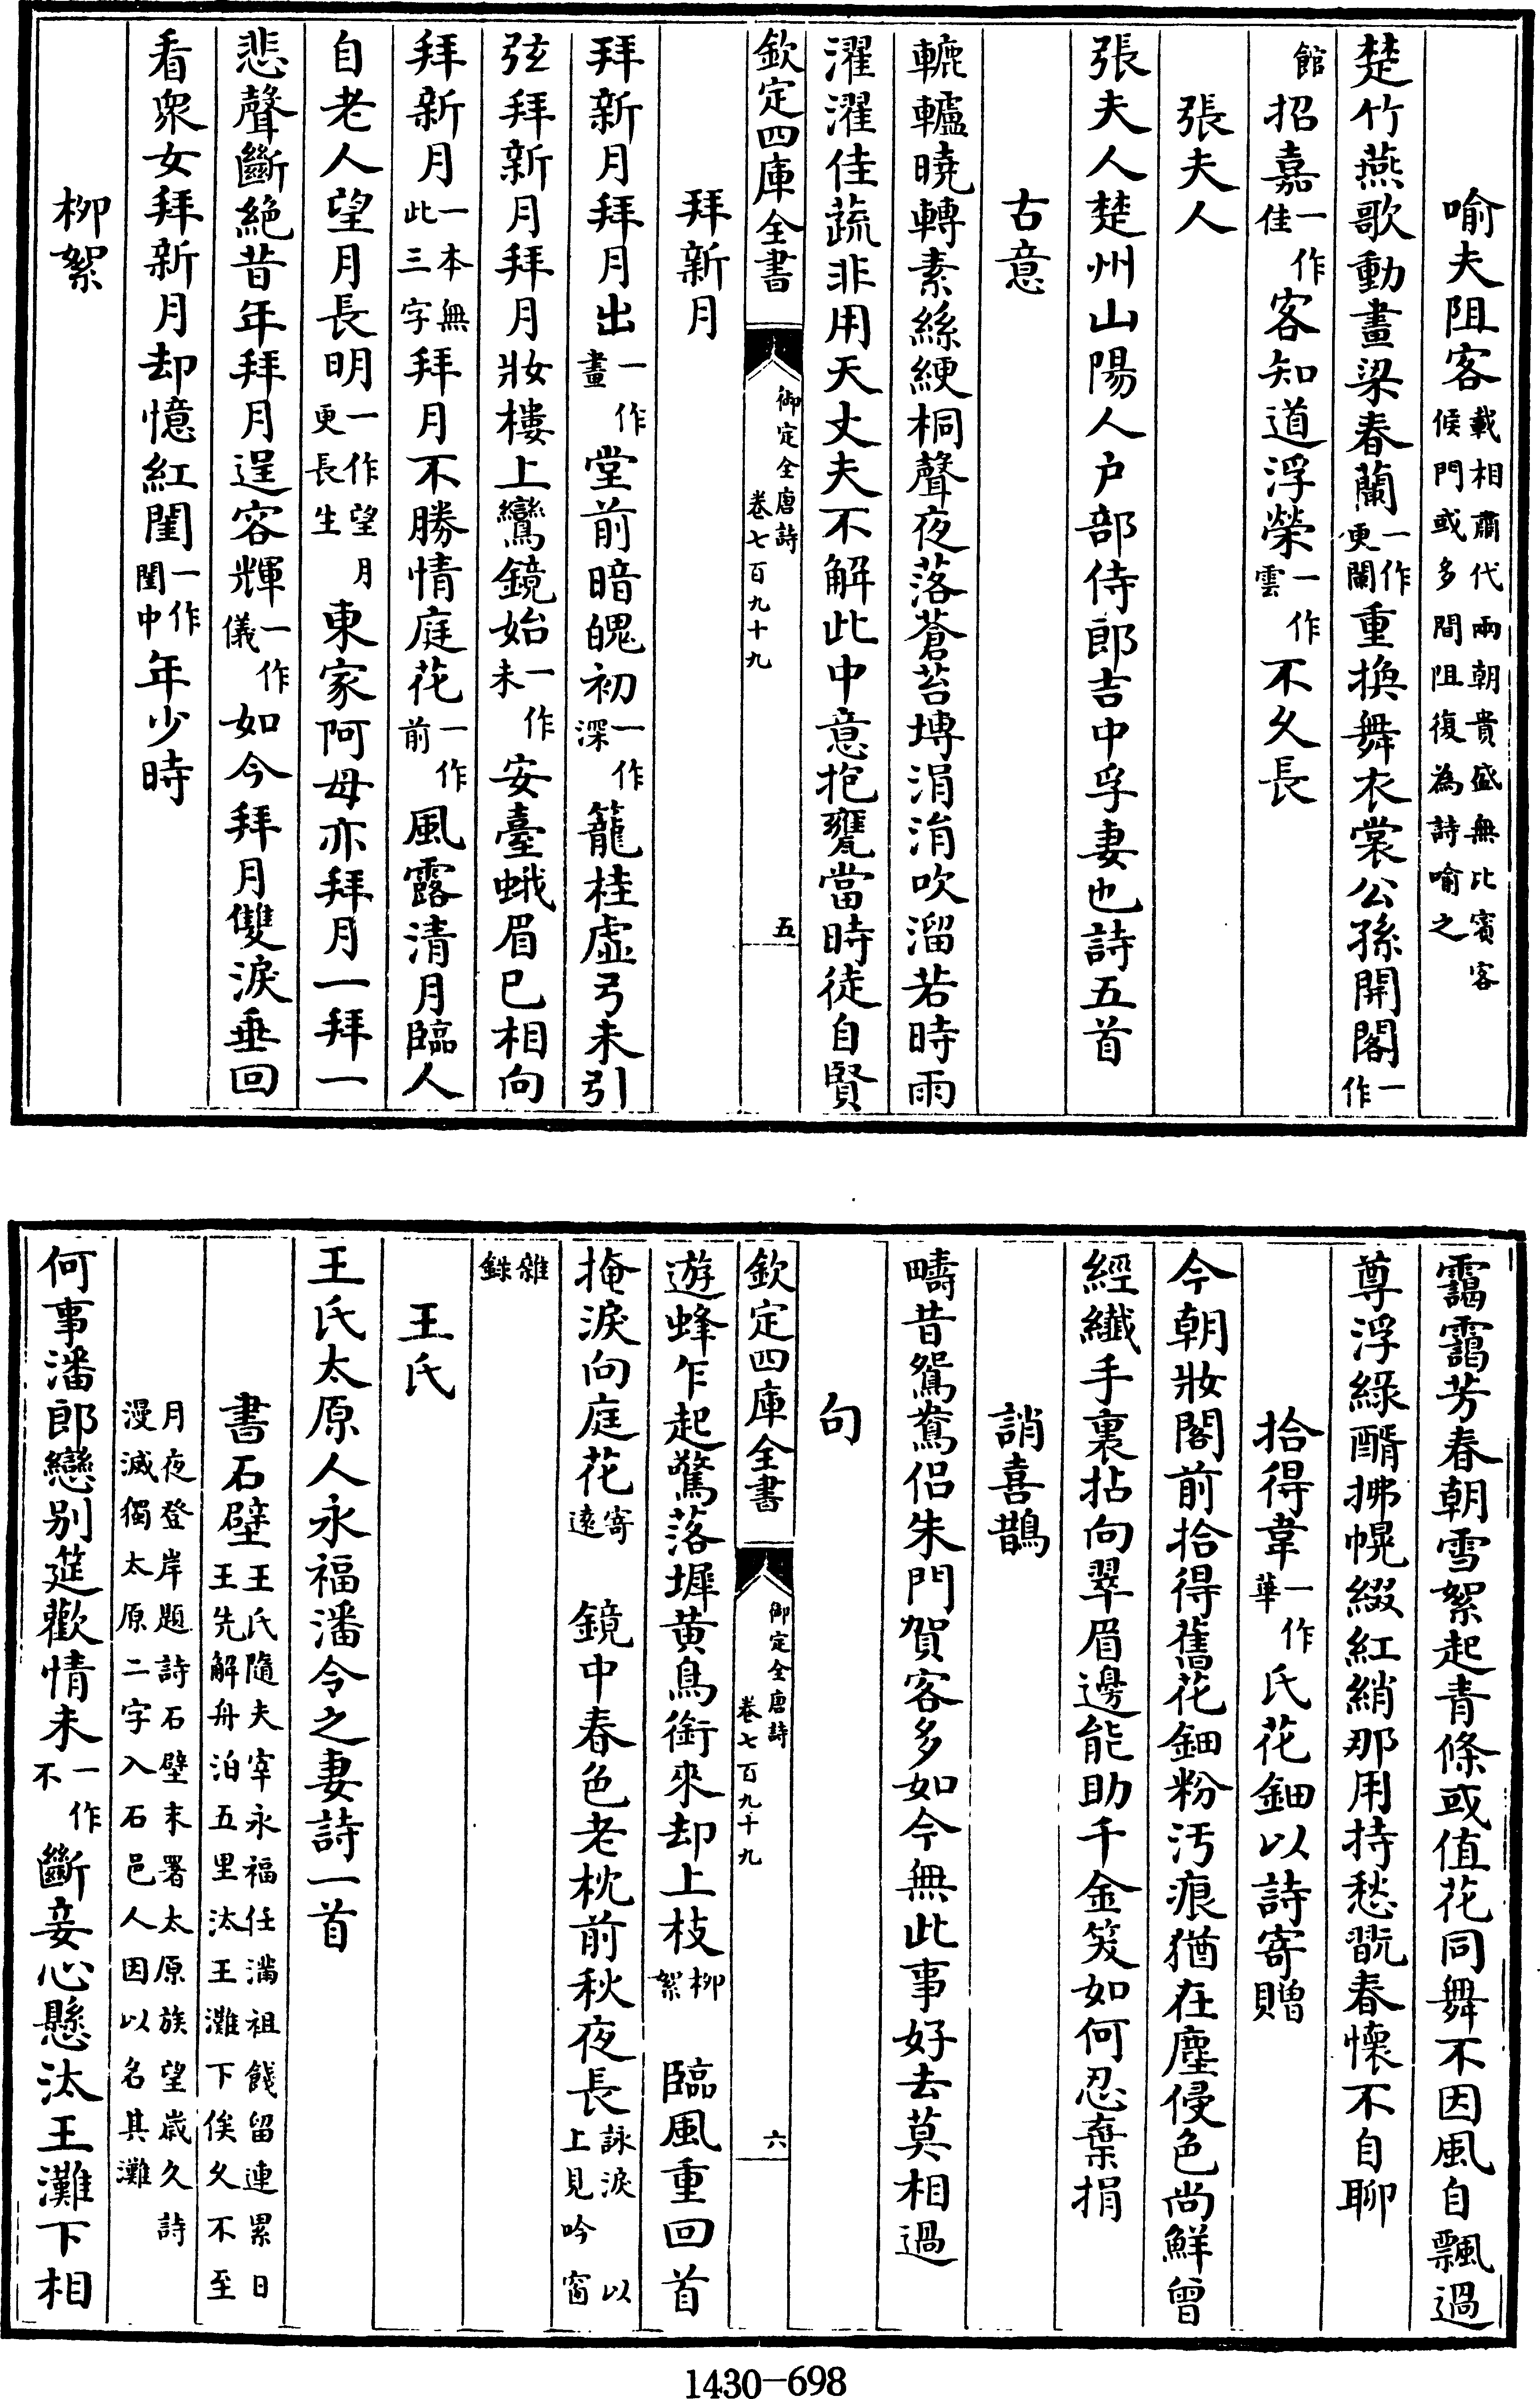 喻夫阻客載相肅代兩朝貴盛無比賓客候門或多間阻復為詩喻之
楚竹燕歌動畫梁春蘭一作更闌重換舞衣裳公孫開閣一作
館招嘉一作佳客知道浮榮一作雲不久長
張夫人
張夫人楚州山陽人户部侍郎吉中孚妻也詩五首
古意
轆轤曉轉素絲綆桐聲夜落蒼苔塼涓涓吹溜若時雨
濯濯佳蔬非用天丈夫不解此中意抱甕當時徒自賢
欽定四庫全書 御定全唐詩卷七百九十九 五
拜新月
拜新月拜月出一作畫堂前暗魄初一作深籠桂虛弓未引
弦拜新月拜月妝樓上鸞鏡始一作未安臺蛾眉已相向
拜新月一本無此三字拜月不勝情庭花一作前風露清月臨人
自老人望月長明一作望月更長生東家阿母亦拜月一拜一
悲聲斷絕昔年拜月逞容輝一作儀如今拜月雙淚垂回
看衆女拜新月却憶紅閨一作閨中年少時
柳絮
靄靄芳春朝雪絮起青條或值花同舞不因風自飄過
尊浮綠醑拂幌綴紅綃那用持愁翫春懷不自聊
拾得韋一作華氏花鈿以詩寄贈
今朝妝閣前拾得舊花鈿粉汚痕猶在塵侵色尚鮮曾
經纖手裏拈向翠眉邊能助千金笑如何忍棄捐
誚喜鵲
疇昔鴛鴦侶朱門賀客多如今無此事好去莫相過
句
欽定四庫全書 御定全唐詩卷七百九十九 六
遊蜂乍起驚落墀黄鳥銜來却上枝柳絮 臨風重回首
掩淚向庭花寄遠 鏡中春色老枕前秋夜長詠淚以上見吟窗
雜錄
王氏
王氏太原人永福潘令之妻詩一首
書石壁王氏隨夫宰永福任滿祖餞留連累日王先解舟泊五里汰王灘下俟久不至
月夜登岸題詩石壁末署太原族望歲久詩漫滅獨太原二字入石邑人因以名其灘
何事潘郎戀别筵歡情未一作不斷妾心懸汰王灘下相
1430-698